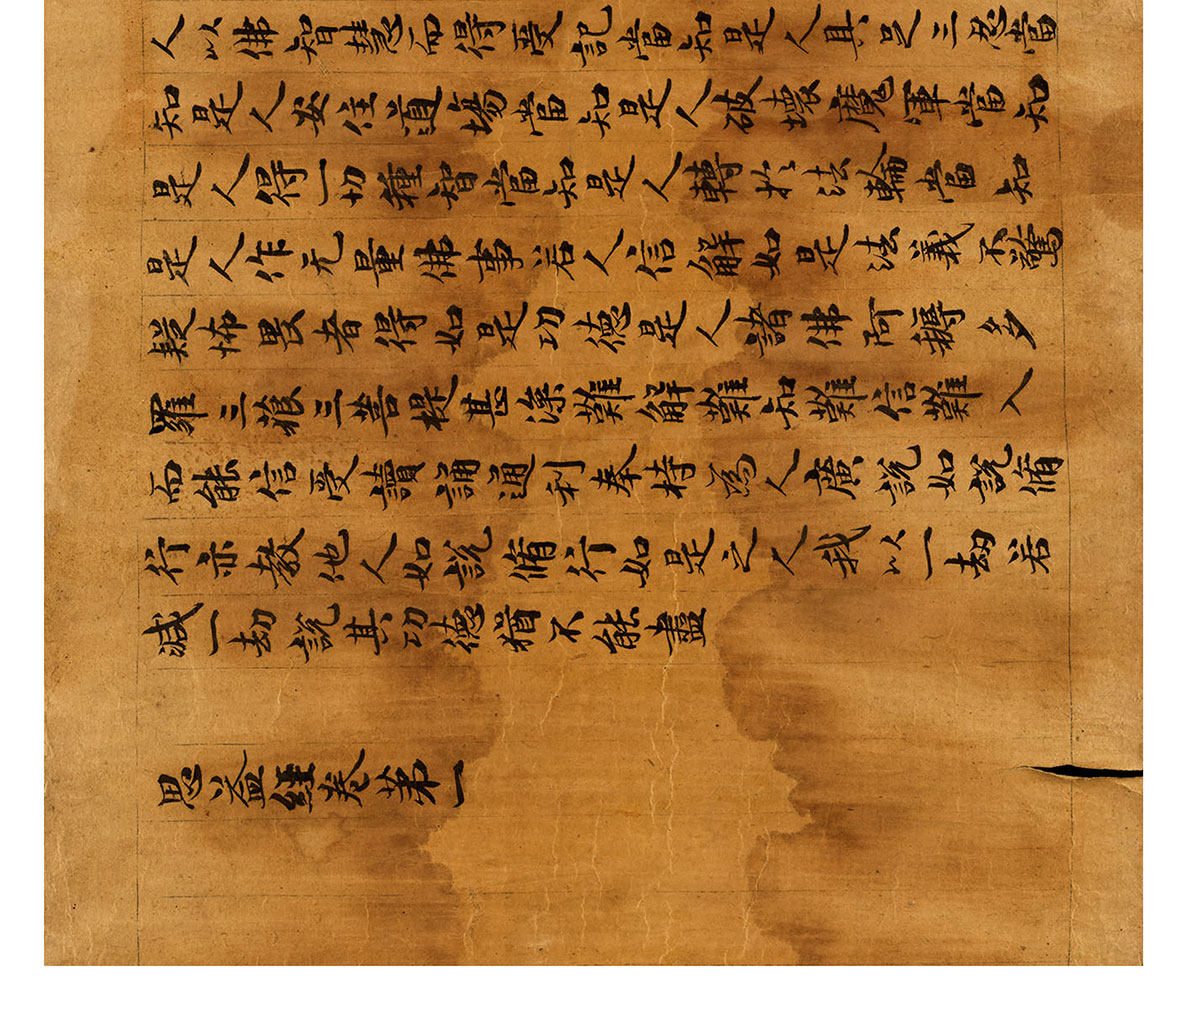 人以佛智慧而得受記當知是人具足三忍當
知是人安住道場當知是人破壞魔軍當知
是人得一切種智當知是人轉於法輪當知
是人作无量佛事若人信解如是法義不驚
疑怖畏者得如是功德是人諸佛阿耨多
羅三藐三菩提甚深難解難知難信難入
而能信受讀誦通利奉持為人廣說如說脩
行亦教他人如說脩行如是之人我以一劫若
減一劫說其功德猶不能盡
思益經卷第一